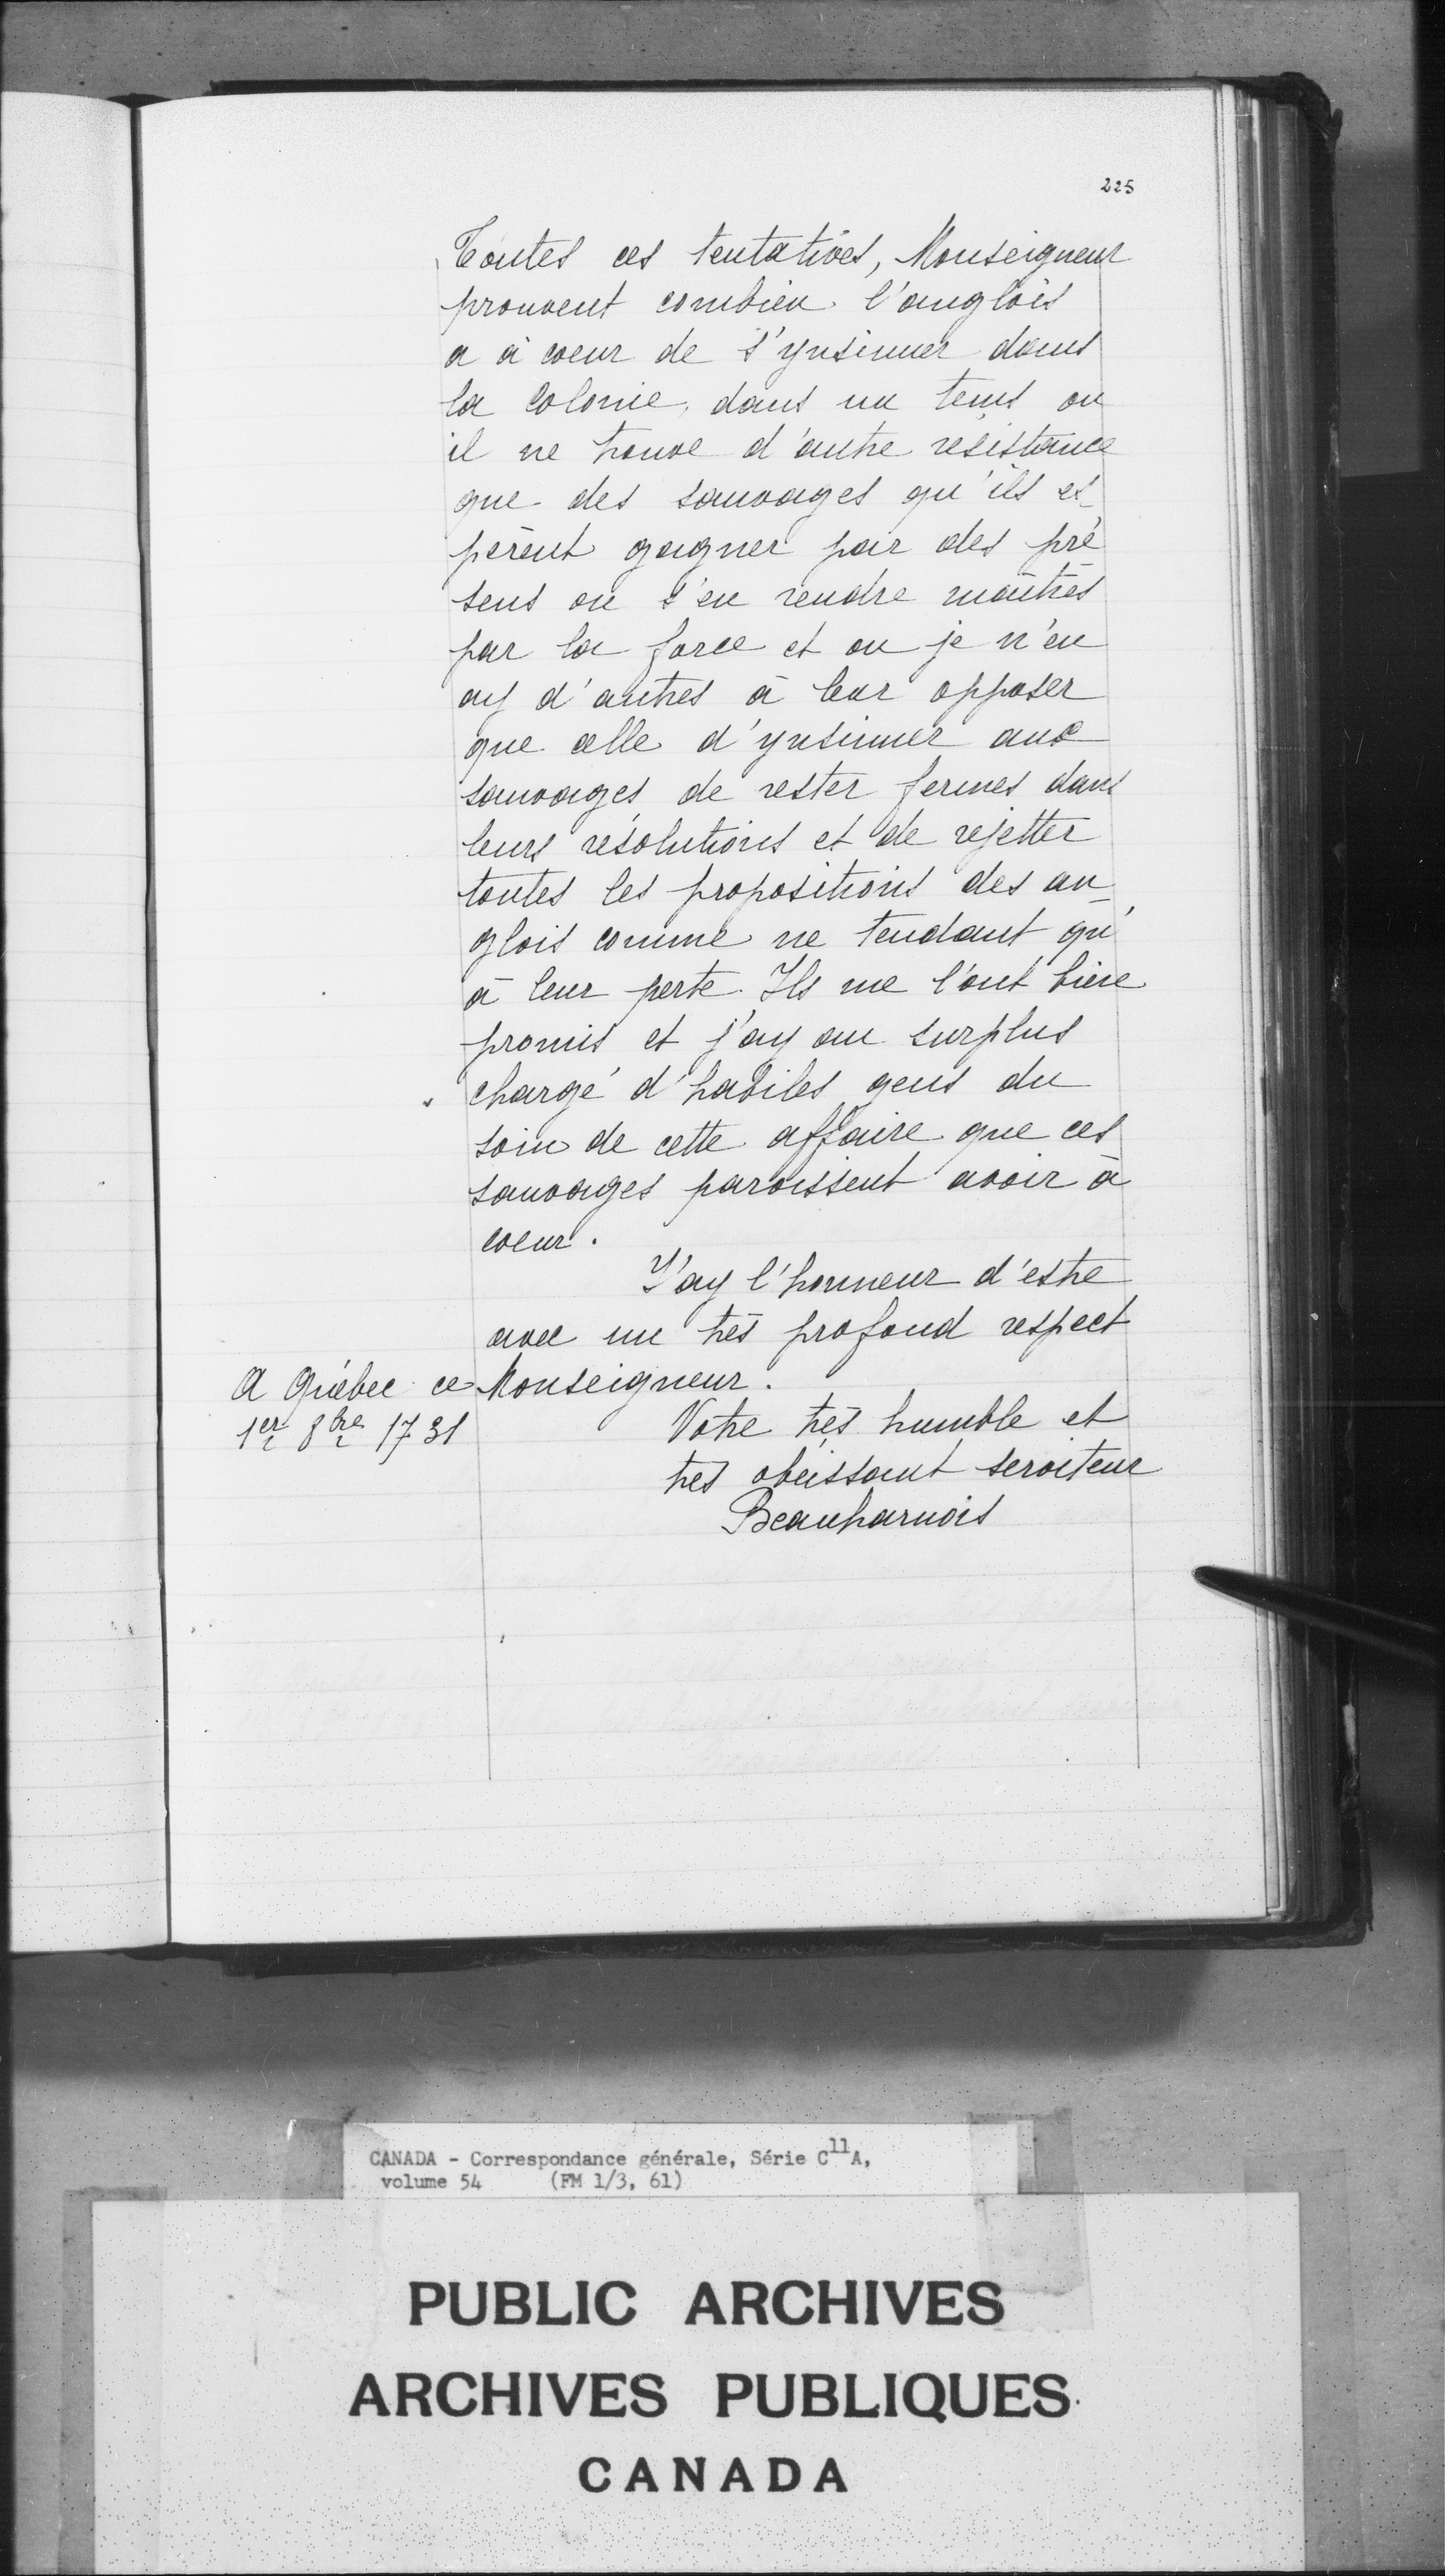 225
Toutes ces tentatives, Monseigneur
prouvent combien l'anglois
a à coeur de s'ynsinuer dans
la Colonie, dans un tems ou
il ne trouve d'autre résistance
que des sauvages qu'ils es-
pèrent gagner par des pré
sens ou s'en rendre maîtres
par la force et ou je n'en
ay d'autres à leur opposer
que celle d'ynsinuer aux
sauvages de rester fermes dans
leurs résolutions et de rejetter
toutes les propositions des an-
glois comme ne tendant qu'
à leur perte. Ils me l'ont bien
promis et j'ay au surplus
chargé d'habiles gens du
soin de cette affaire que ces
sauvages paroissent avoir à
coeur.
J'ay l'honneur d'estre
avec un très profond respect
Monseigneur.
A Québec ce
1er 8bre 1731
Votre très humble et
très obéissant serviteur
Beauharnois
CANADA - Correspondance générale, Série C11A,
volume 54 (FM 1/3, 61)
PUBLIC ARCHIVES
ARCHIVES PUBLIQUES
CANADA